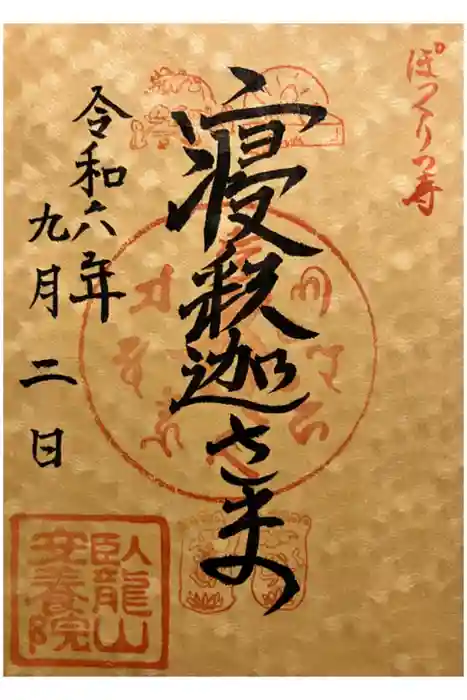 ぽっくり寺
寝釈迦さま
令和六年
九月二日
臥龍山
安養院